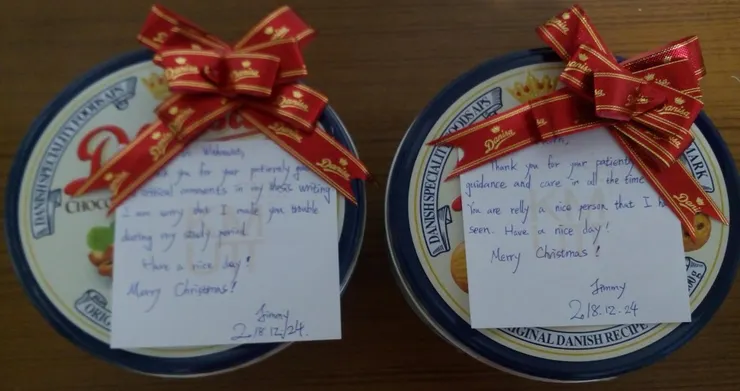 Danisa
Danisa
Danisa
Danisa
DANISH SPECIALITY FOODS APS
CHOCO
ORIG
you for your patiently
comments in my thesis writing
I am sorry that I made you trouble
during my study period
Have a nice day!
Merry Christmas!
Jimmy
2018.12.24.
Danisa
Danisa
Danisa
DANISH SPECIALITY FOODS APS
MARK
Thank you for your patiently
guidance and care in all the time
You are relly a nice person that I
seen. Have a nice day!
Merry Christmas!
Jimmy
2018.12.24
ORIGINAL DANISH RECIPE